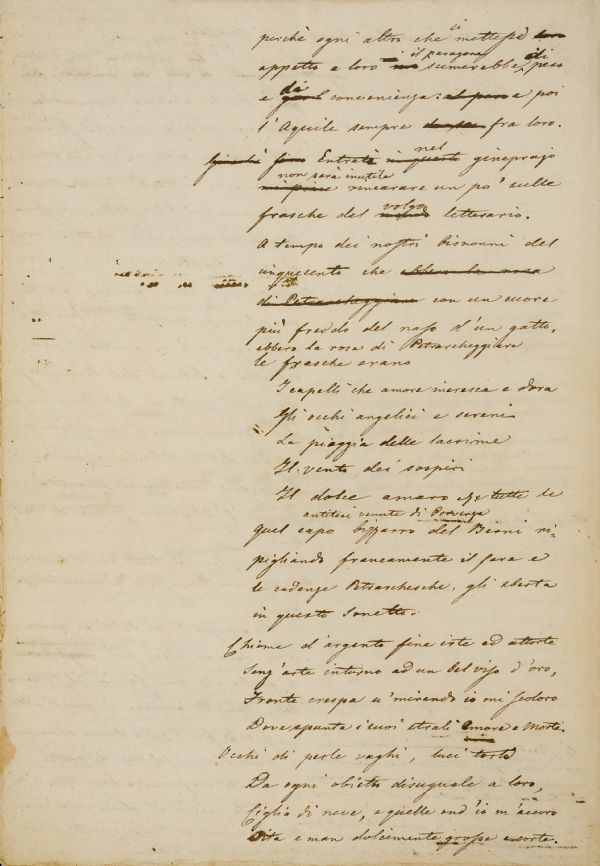 perchè ogni altro che si mettesse
appetto a loro il paragone scemerebbe di peso
e da convenienza: e poi
l'Aquile sempre fra loro.
Entrati nel ginepraio
non sarà inutile
rincarare un po' sulle
volgo
frasche del letterario.
A tempo dei nostri bisnonni del
cinquecento che ebbero la rosa
di Petrarcheggiare con un cuore
più freddo del naso d'un gatto,
ebbero la rosa di Petrarcheggiare
le frasche erano
I capelli che amore increspa e dora
Gli occhi angelici e sereni
La pioggia delle lacrime
Il vento dei sospiri
Il dolce amaro e tutte le
antitesi venute di Provenza
Quel capo bizzarro del Berni ri-
pigliando francamente il fare e
le cadenze Petrarchesche, gli sberta
in questo Sonetto.
Chiome d'argento fine irte ed attorte
Senz'arte intorno ad un bel viso d'oro,
Fronte crespa u' mirando io mi scoloro
Dove spunta i suoi strali Amore e Morte.
Occhi di perle vaghi, luci torte
Da ogni obietto disuguale a loro,
Ciglia di neve, e quelle ond'io m'accoro
Dita e man dolcemente grosse e corte.